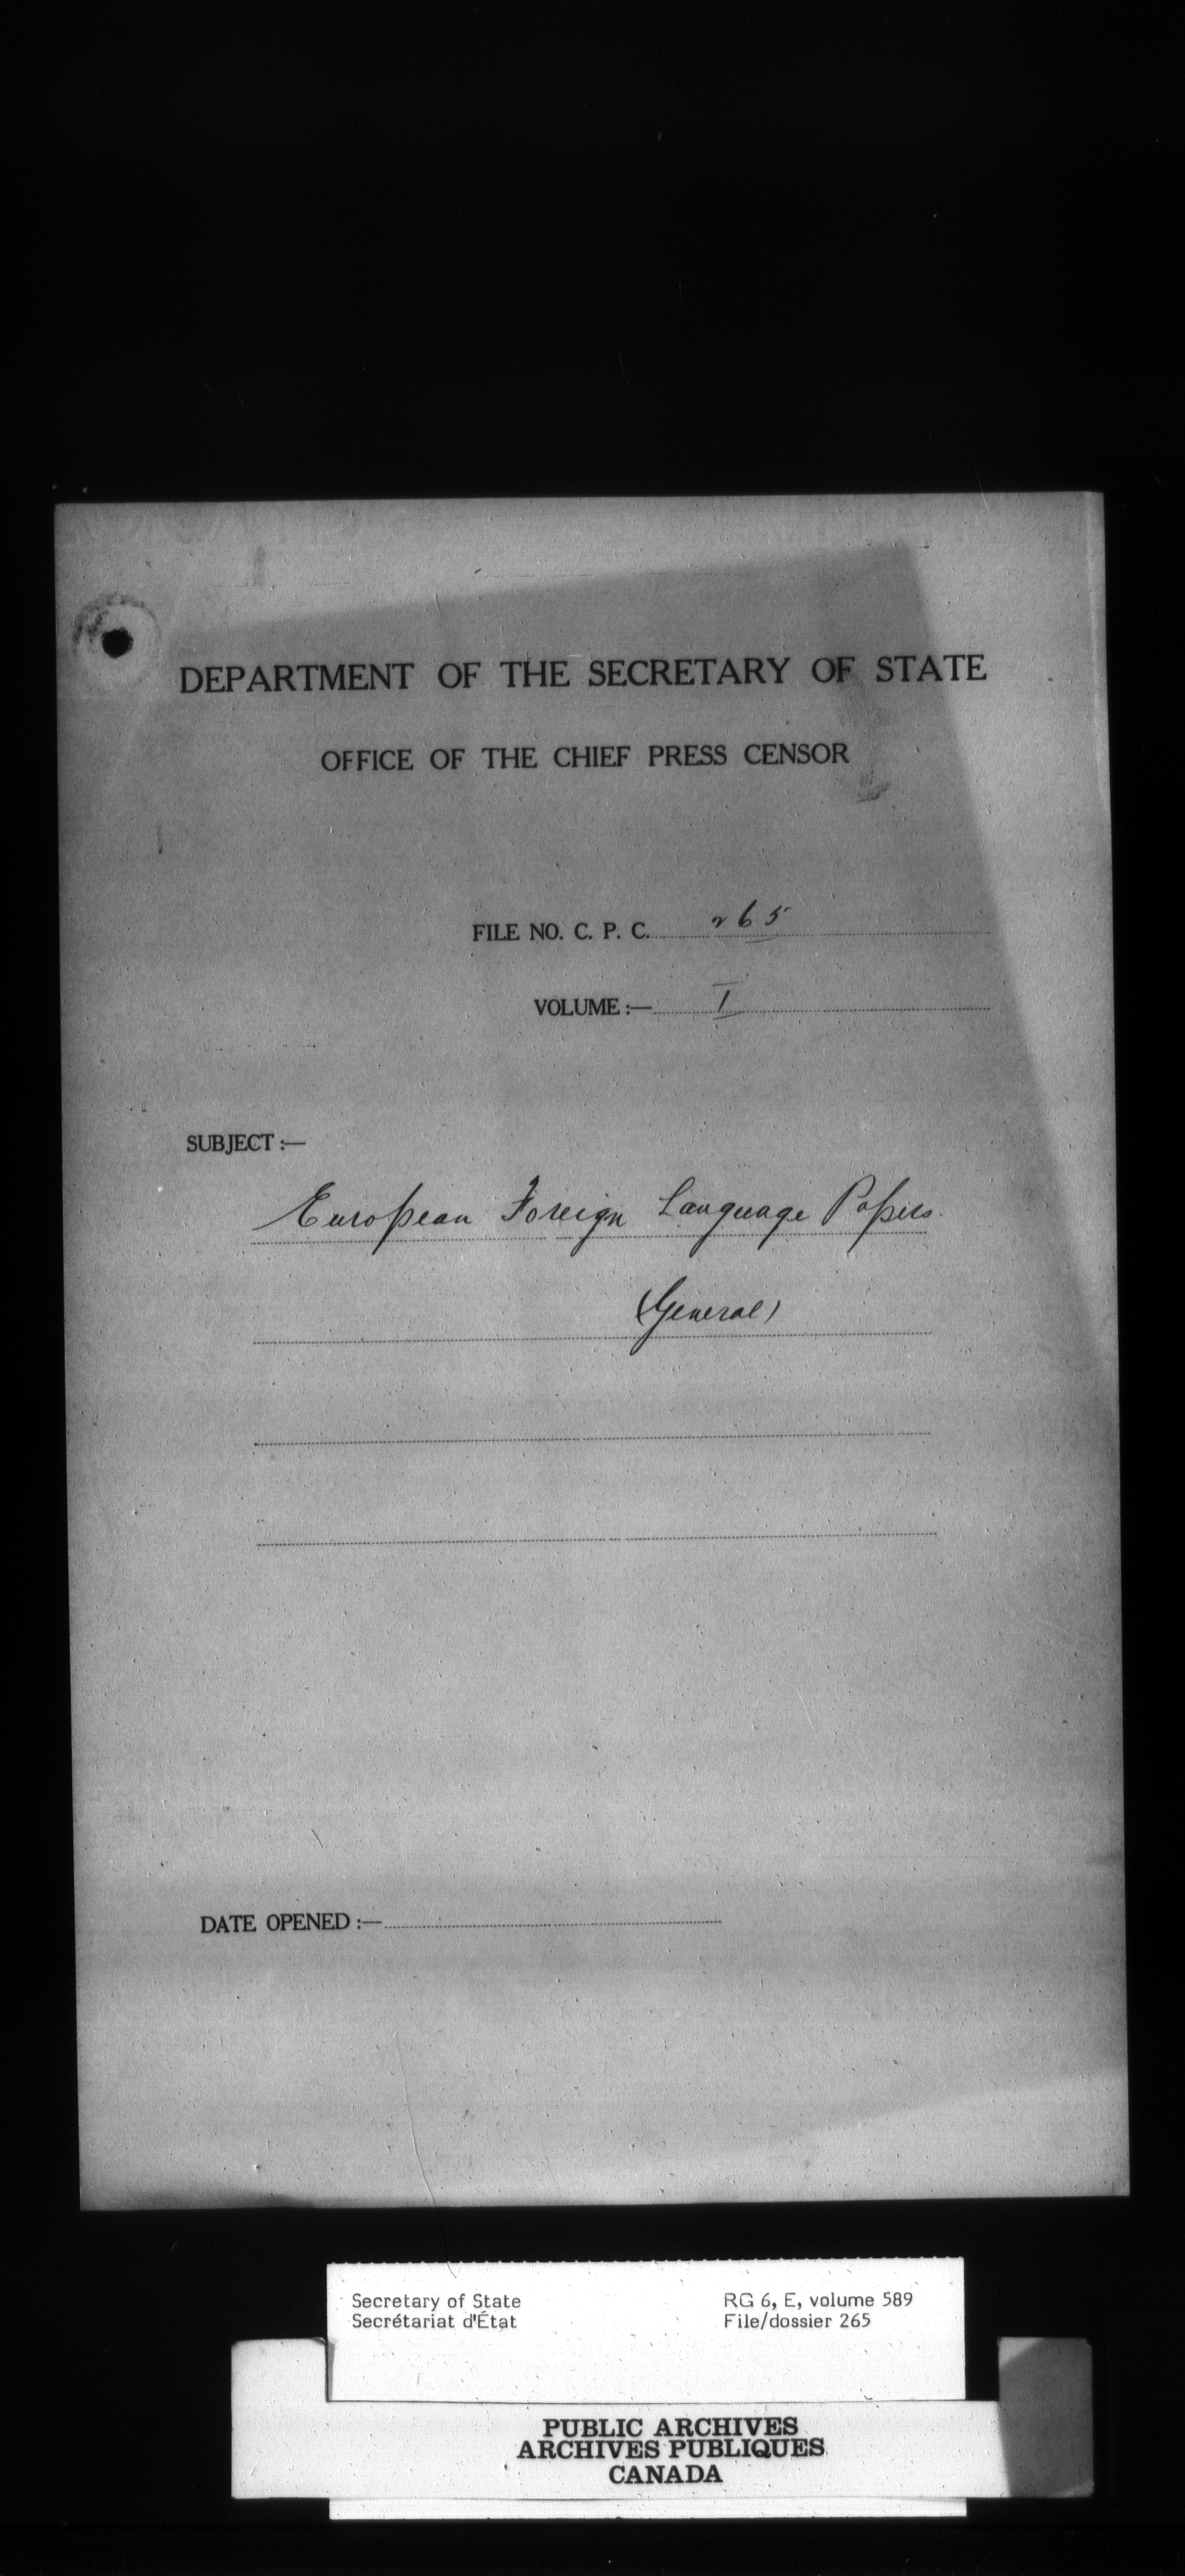 DEPARTMENT OF THE SECRETARY OF STATE
OFFICE OF THE CHIEF PRESS CENSOR
FILE NO. C. P. C. 265
VOLUME :— I
SUBJECT :—
European Foreign Language Papers.
(General)
DATE OPENED :—
Secretary of State
Secrétariat d'État
RG 6, E, volume 589
File/dossier 265
PUBLIC ARCHIVES
ARCHIVES PUBLIQUES
CANADA